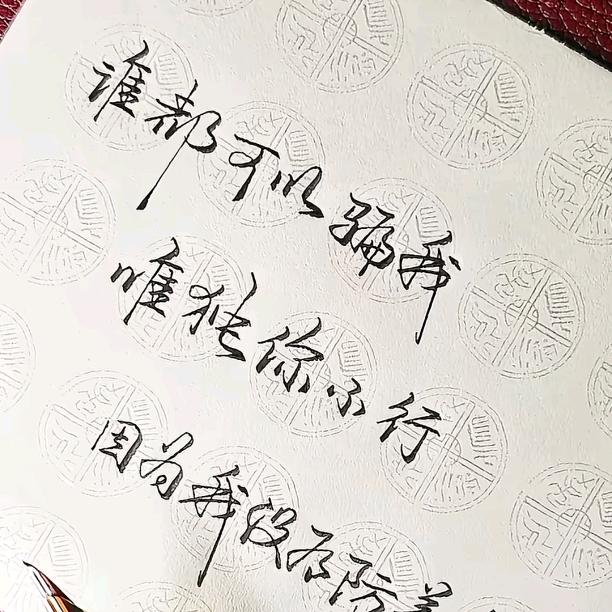 谁都可以骗我
唯独你不行
因为我没有防